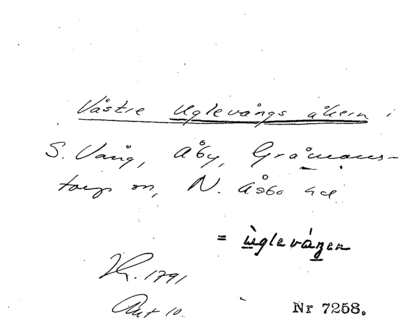 Västre Uglevångs åkern i
S. Vång, Åby, Gråmans-
torps sn, N. Åsbo hd
= ùglevåŋen
1791
Akt 10.
Nr 7258.